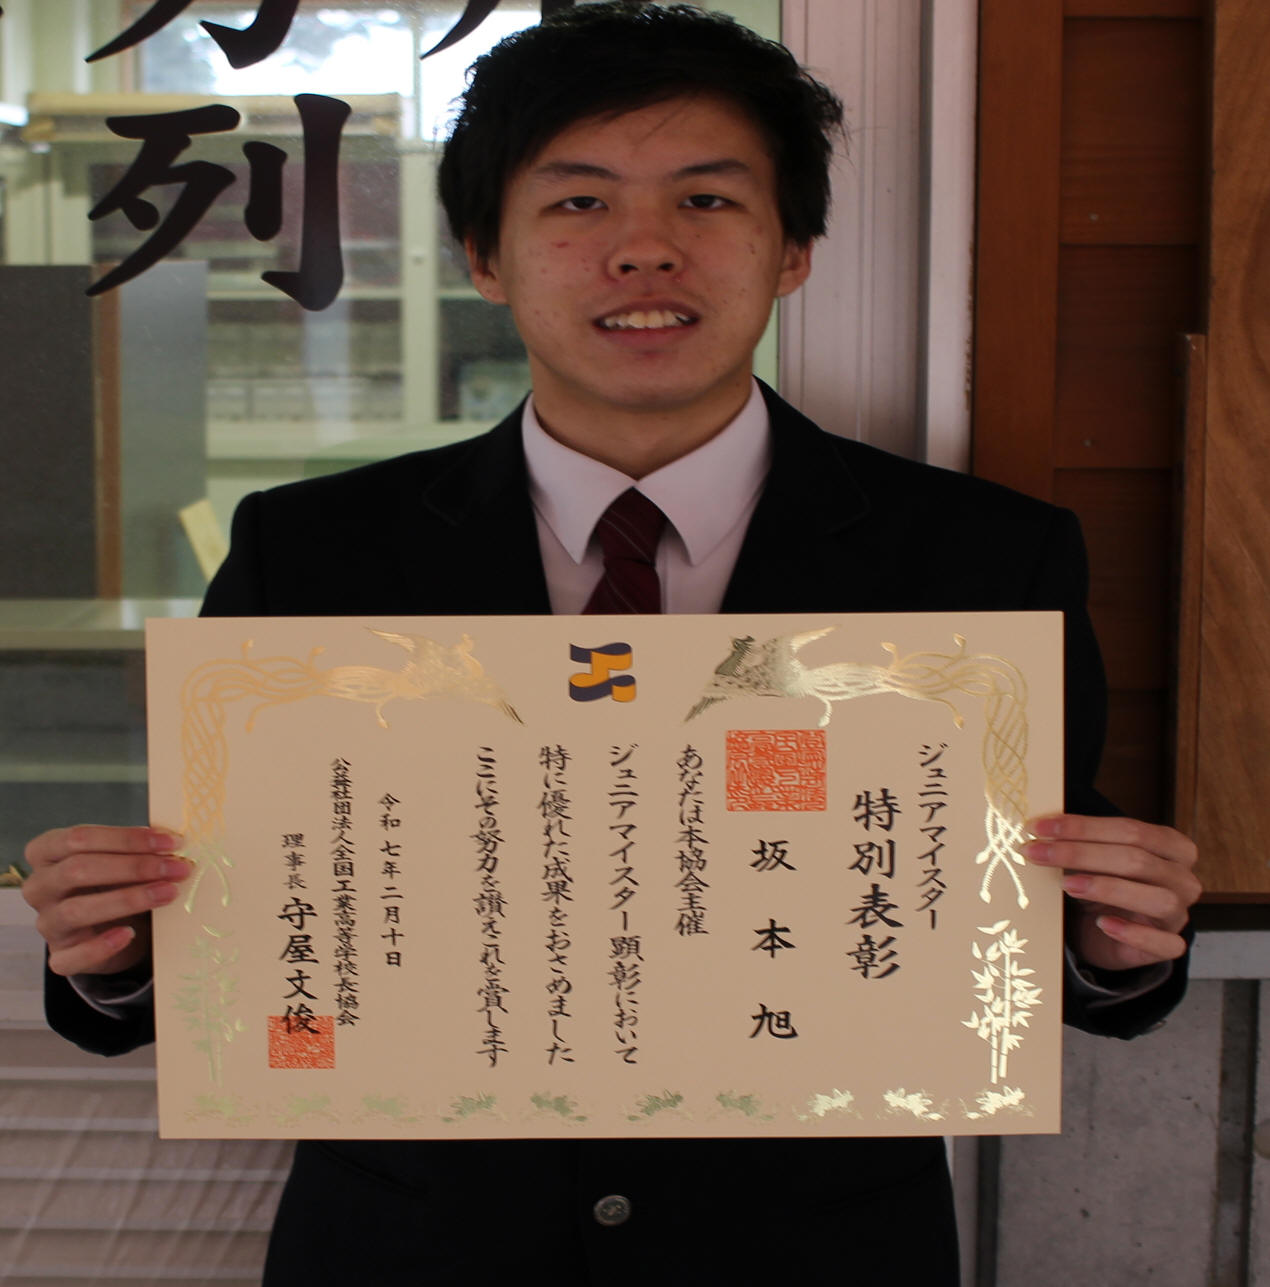 ジュニアマイスター
特別表彰
坂本旭
あなたは本協会主催
ジュニアマイスター顕彰において
特に優れた成果をおさめました
ここにその努力を讃えこれを賞します
令和七年二月十日
公益社団法人全国工業高等学校長協会
理事長 守屋文俊
列